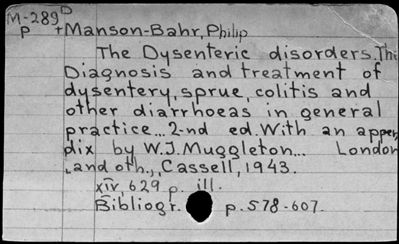 M-289 D
p +Manson-Bahr, Philip
The Dysenteric disorders. Thi
Diagnosis and treatment of
dysentery, sprue, colitis and
other diarrhoeas in general
practice... 2-nd ed. With an appen
dix by W.J. Muggleton... London
, and oth., Cassell, 1943.
xiv, 629 p. ill.
Bibliogr. p. 578-607.